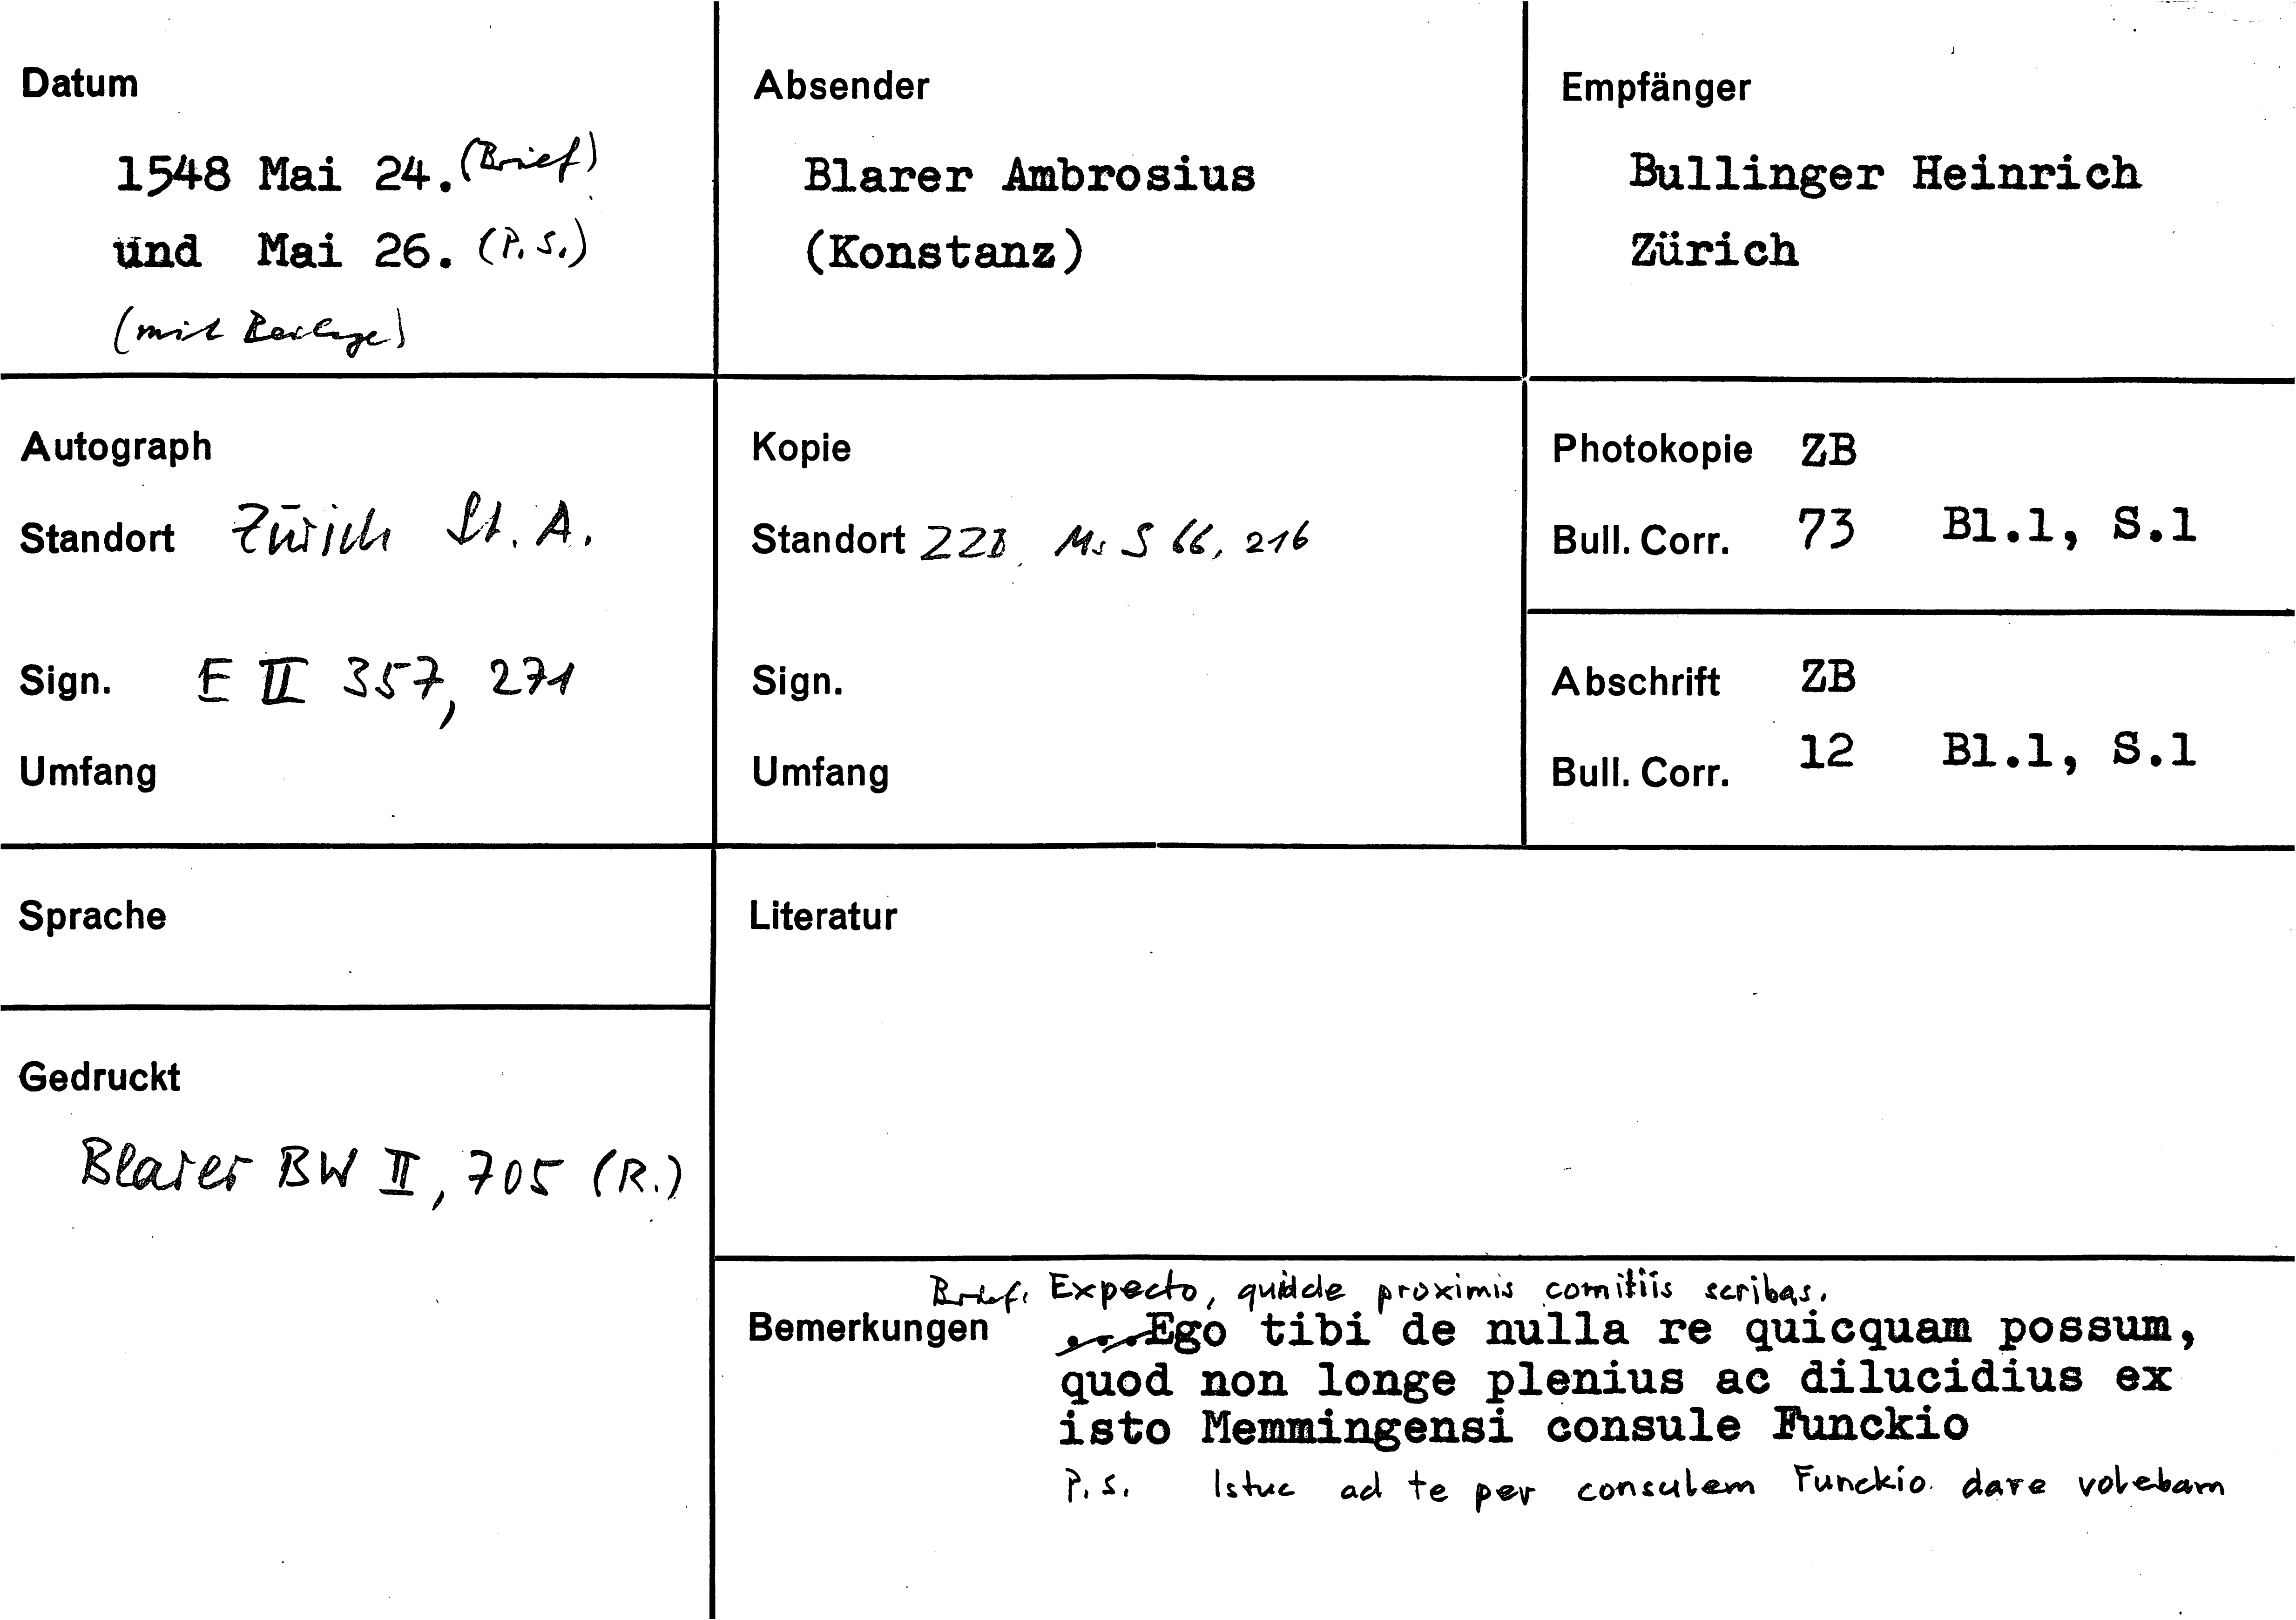 Datum
1548 Mai 24. (Brief)
und Mai 26. (P.S.)
(mit Beilage)
Absender
Blarer Ambrosius
(Konstanz)
Empfänger
Bullinger Heinrich
Zürich
Autograph
Standort Zürich St. A.
Sign. E II 357, 271
Umfang
Kopie
Standort ZZB Ms S 66, 216
Sign.
Umfang
Photokopie ZB
Bull. Corr. 73 Bl.1, S.1
Abschrift ZB
Bull. Corr. 12 Bl.1, S.1
Sprache
Gedruckt
Blarer BW II, 705 (R.)
Literatur
Bemerkungen
Brief. Expecto, quid de proximis comitiis scribas.
...Ego tibi de nulla re quicquam possum,
quod non longe plenius ac dilucidius ex
isto Memmingensi consule Funckio
P.S. Istuc ad te per consulem Funckio dare volebam